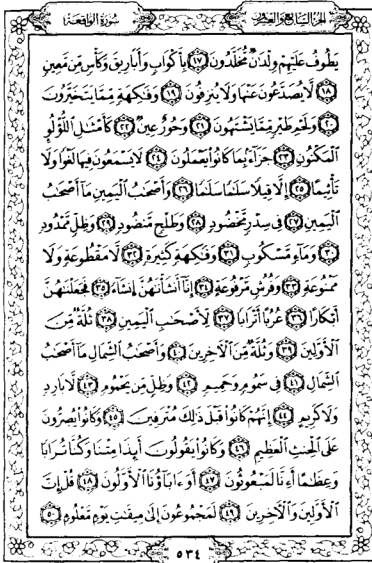 الجزء السابع والعشرون
سورة الواقعة
يَطُوفُ عَلَيْهِمْ وِلْدَٰنٌ مُّخَلَّدُونَ ١٧ بِأَكْوَابٍ وَأَبَارِيقَ وَكَأْسٍ مِّن مَّعِينٍ
١٨ لَّا يُصَدَّعُونَ عَنْهَا وَلَا يُنزِفُونَ ١٩ وَفَٰكِهَةٍ مِّمَّا يَتَخَيَّرُونَ
٢٠ وَلَحْمِ طَيْرٍ مِّمَّا يَشْتَهُونَ ٢١ وَحُورٌ عِينٌ ٢٢ كَأَمْثَٰلِ اللُّؤْلُوِٕ
الْمَكْنُونِ ٢٣ جَزَآءً بِمَا كَانُوا۟ يَعْمَلُونَ ٢٤ لَا يَسْمَعُونَ فِيهَا لَغْوًا وَلَا
تَأْثِيمًا ٢٥ إِلَّا قِيلًا سَلَٰمًا سَلَٰمًا ٢٦ وَأَصْحَٰبُ الْيَمِينِ مَآ أَصْحَٰبُ
الْيَمِينِ ٢٧ فِى سِدْرٍ مَّخْضُودٍ ٢٨ وَطَلْحٍ مَّنضُودٍ ٢٩ وَظِلٍّ مَّمْدُودٍ
٣٠ وَمَآءٍ مَّسْكُوبٍ ٣١ وَفَٰكِهَةٍ كَثِيرَةٍ ٣٢ لَّا مَقْطُوعَةٍ وَلَا
مَمْنُوعَةٍ ٣٣ وَفُرُشٍ مَّرْفُوعَةٍ ٣٤ إِنَّآ أَنشَأْنَٰهُنَّ إِنشَآءً ٣٥ فَجَعَلْنَٰهُنَّ
أَبْكَارًا ٣٦ عُرُبًا أَتْرَابًا ٣٧ لِّأَصْحَٰبِ الْيَمِينِ ٣٨ ثُلَّةٌ مِّنَ
الْأَوَّلِينَ ٣٩ وَثُلَّةٌ مِّنَ الْآخِرِينَ ٤٠ وَأَصْحَٰبُ الشِّمَالِ مَآ أَصْحَٰبُ
الشِّمَالِ ٤١ فِى سَمُومٍ وَحَمِيمٍ ٤٢ وَظِلٍّ مِّن يَحْمُومٍ ٤٣ لَّا بَارِدٍ
وَلَا كَرِيمٍ ٤٤ إِنَّهُمْ كَانُوا۟ قَبْلَ ذَٰلِكَ مُتْرَفِينَ ٤٥ وَكَانُوا۟ يُصِرُّونَ
عَلَى الْحِنثِ الْعَظِيمِ ٤٦ وَكَانُوا۟ يَقُولُونَ أَئِذَا مِتْنَا وَكُنَّا تُرَابًا
وَعِظَٰمًا أَءِنَّا لَمَبْعُوثُونَ ٤٧ أَوَءَابَآؤُنَا الْأَوَّلُونَ ٤٨ قُلْ إِنَّ
الْأَوَّلِينَ وَالْآخِرِينَ ٤٩ لَمَجْمُوعُونَ إِلَىٰ مِيقَٰتِ يَوْمٍ مَّعْلُومٍ ٥٠
٥٣٤